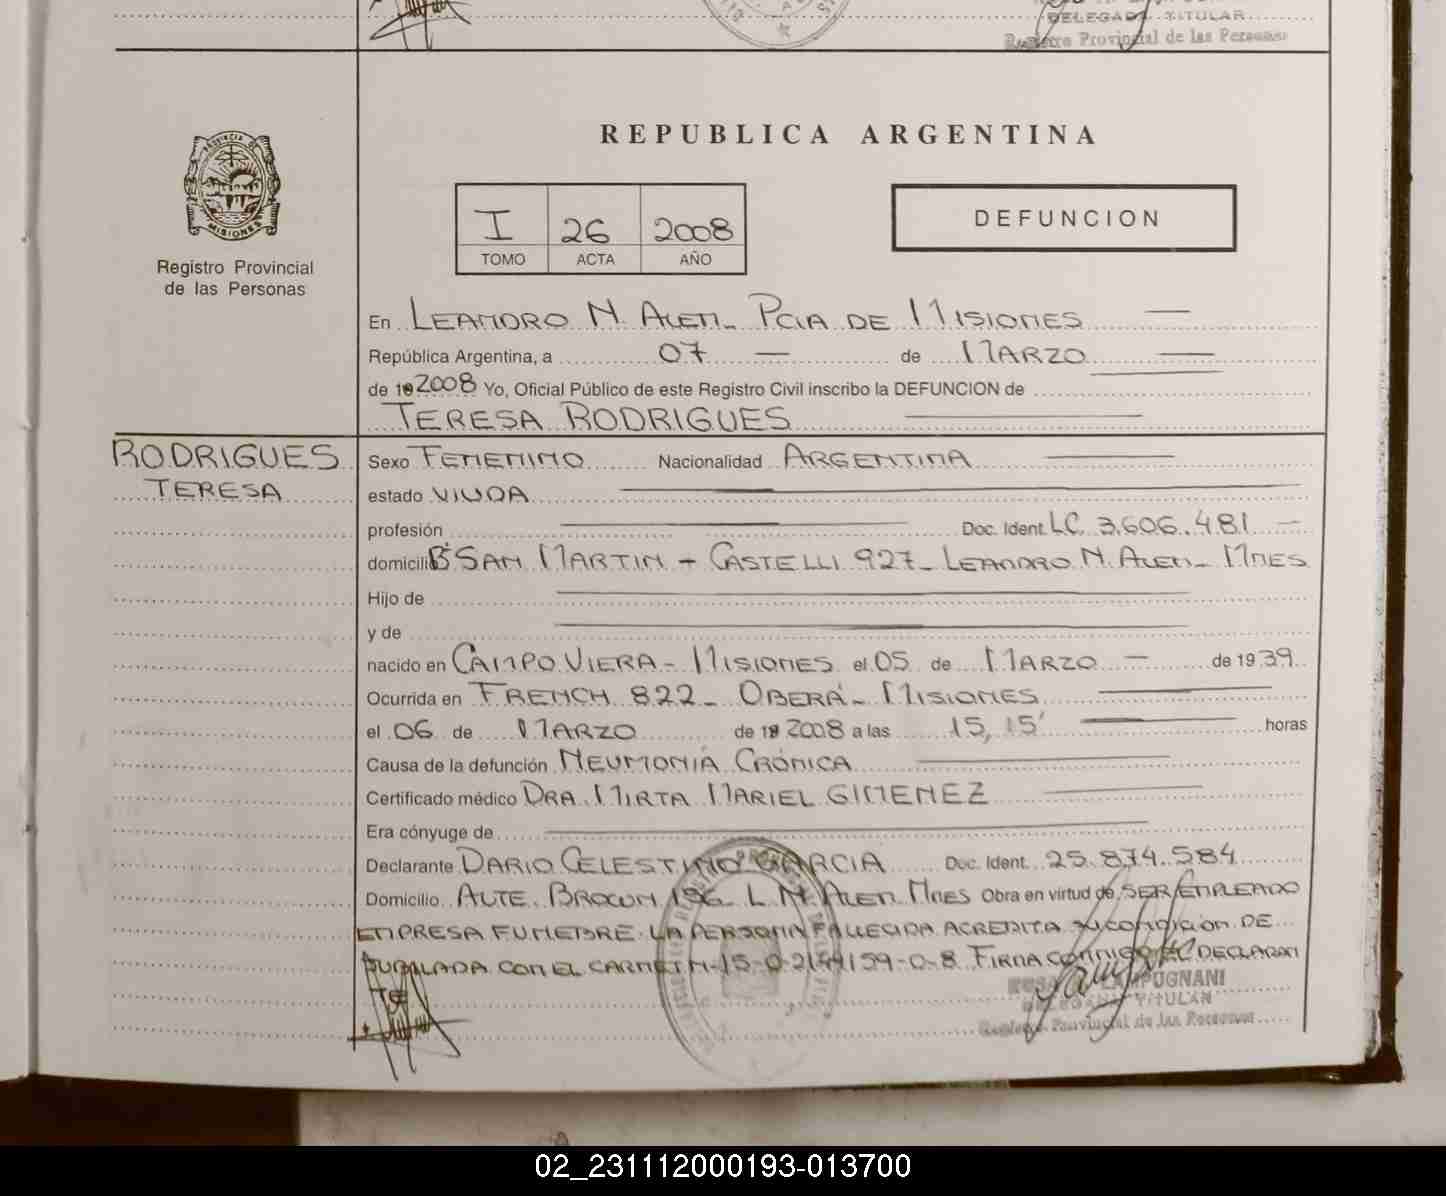 DELEGADA TITULAR
Registro Provincial de las Personas
PROVINCIA DE
MISIONES
Registro Provincial
de las Personas
REPUBLICA ARGENTINA
I 26 2008
TOMO ACTA AÑO
DEFUNCION
En LEANDRO N. ALEM_ PCIA DE MISIONES
República Argentina, a 07 — de MARZO
de 19 2008 Yo, Oficial Público de este Registro Civil inscribo la DEFUNCION de
TERESA RODRIGUES
RODRIGUES
TERESA
Sexo FEMENINO Nacionalidad ARGENTINA
estado VIUDA
profesión Doc. Ident. LC 3.606.481 —
domicilio Bº SAN MARTIN - CASTELLI 927_ LEANDRO N. ALEM_ MNES
Hijo de
y de
nacido en CAMPO VIERA - MISIONES el 05 de MARZO — de 19 39
Ocurrida en FRENCH 822_ OBERÁ_ MISIONES
el 06 de MARZO de 19 2008 a las 15,15' horas
Causa de la defunción NEUMONÍA CRÓNICA
Certificado médico DRA. MIRTA MARIEL GIMENEZ
Era cónyuge de
Declarante DARIO CELESTINO GARCIA Doc. Ident. 25.874.584
Domicilio ALTE. BROWN 196_ L.N. ALEM MNES Obra en virtud de SER EMPLEADO
EMPRESA FUNEBRE. LA PERSONA FALLECIDA ACREDITA SU CONDICION DE
JUBILADA CON EL CARNET N-15-0-2149159-0-8. FIRMA CONMIGO EL DECLARAN
TE
LAMPUGNANI
DELEGADA TITULAR
Registro Provincial de las Personas
02_231112000193-013700